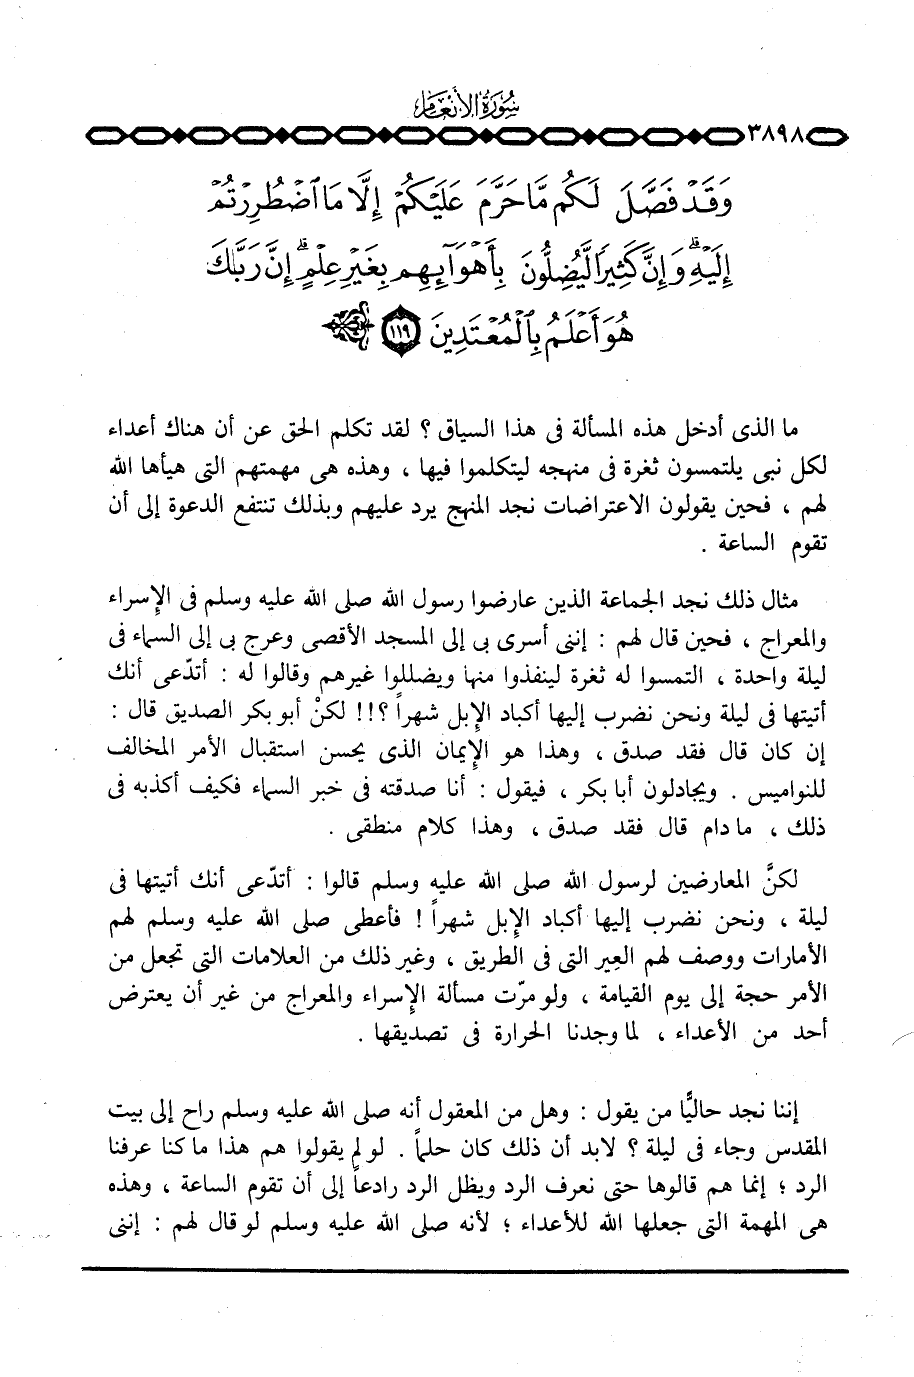 سُورَةُ الأَنْعَام
٣٨٩٨
وَقَدْ فَصَّلَ لَكُم مَّا حَرَّمَ عَلَيْكُمْ إِلَّا مَا ٱضْطُرِرْتُمْ
إِلَيْهِ ۗ وَإِنَّ كَثِيرًا لَّيُضِلُّونَ بِأَهْوَآئِهِم بِغَيْرِ عِلْمٍ ۗ إِنَّ رَبَّكَ
هُوَ أَعْلَمُ بِٱلْمُعْتَدِينَ ١١٩
ما الذى أدخل هذه المسألة فى هذا السياق ؟ لقد تكلم الحق عن أن هناك أعداء
لكل نبى يلتمسون ثغرة فى منهجه ليتكلموا فيها ، وهذه هى مهمتهم التى هيأها الله
لهم ، فحين يقولون الاعتراضات نجد المنهج يرد عليهم وبذلك تنتفع الدعوة إلى أن
تقوم الساعة .
مثال ذلك نجد الجماعة الذين عارضوا رسول الله صلى الله عليه وسلم فى الإسراء
والمعراج ، فحين قال لهم : إننى أسرى بى إلى المسجد الأقصى وعرج بى إلى السماء فى
ليلة واحدة ، التمسوا له ثغرة لينفذوا منها ويضللوا غيرهم وقالوا له : أتدّعى أنك
أتيتها فى ليلة ونحن نضرب إليها أكباد الإبل شهراً ؟!! لكنْ أبو بكر الصديق قال :
إن كان قال فقد صدق ، وهذا هو الإيمان الذى يحسن استقبال الأمر المخالف
للنواميس . ويجادلون أبا بكر ، فيقول : أنا صدقته فى خبر السماء فكيف أكذبه فى
ذلك ، ما دام قال فقد صدق ، وهذا كلام منطقى .
لكنَّ المعارضين لرسول الله صلى الله عليه وسلم قالوا : أتدّعى أنك أتيتها فى
ليلة ، ونحن نضرب إليها أكباد الإبل شهراً ! فأعطى صلى الله عليه وسلم لهم
الأمارات ووصف لهم العِير التى فى الطريق ، وغير ذلك من العلامات التى تجعل من
الأمر حجة إلى يوم القيامة ، ولو مرّت مسألة الإسراء والمعراج من غير أن يعترض
أحد من الأعداء ، لما وجدنا الحرارة فى تصديقها .
إننا نجد حاليًّا من يقول : وهل من المعقول أنه صلى الله عليه وسلم راح إلى بيت
المقدس وجاء فى ليلة ؟ لابد أن ذلك كان حلماً . لو لم يقولوا هم هذا ما كنا عرفنا
الرد ؛ إنما هم قالوها حتى نعرف الرد ويظل الرد رادعاً إلى أن تقوم الساعة ، وهذه
هى المهمة التى جعلها الله للأعداء ؛ لأنه صلى الله عليه وسلم لو قال لهم : إننى